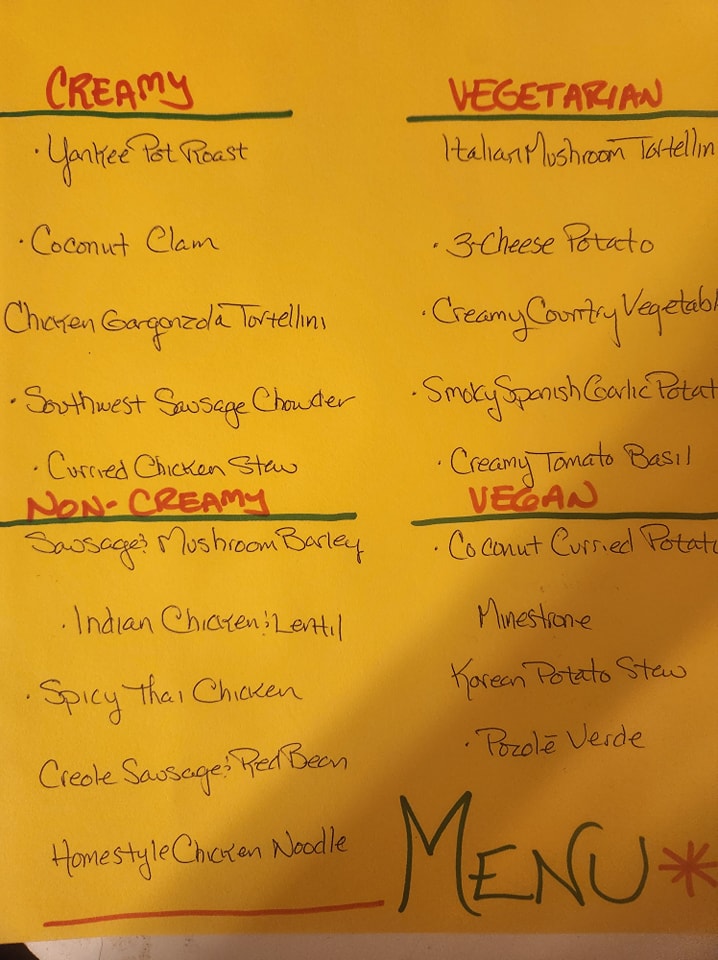 CREAMY
· Yankee Pot Roast
· Coconut Clam
Chicken Gargonzola Tortellini
· Southwest Sausage Chowder
· Curried Chicken Stew
NON-CREAMY
Sausage & Mushroom Barley
· Indian Chicken & Lentil
· Spicy Thai Chicken
Creole Sausage & Red Bean
Homestyle Chicken Noodle
VEGETARIAN
Italian Mushroom Tortellin
· 3-Cheese Potato
· Creamy Country Vegetabl
· Smoky Spanish Garlic Potat
· Creamy Tomato Basil
VEGAN
· Coconut Curried Potato
Minestrone
Korean Potato Stew
· Pozolē Verde
MENU*